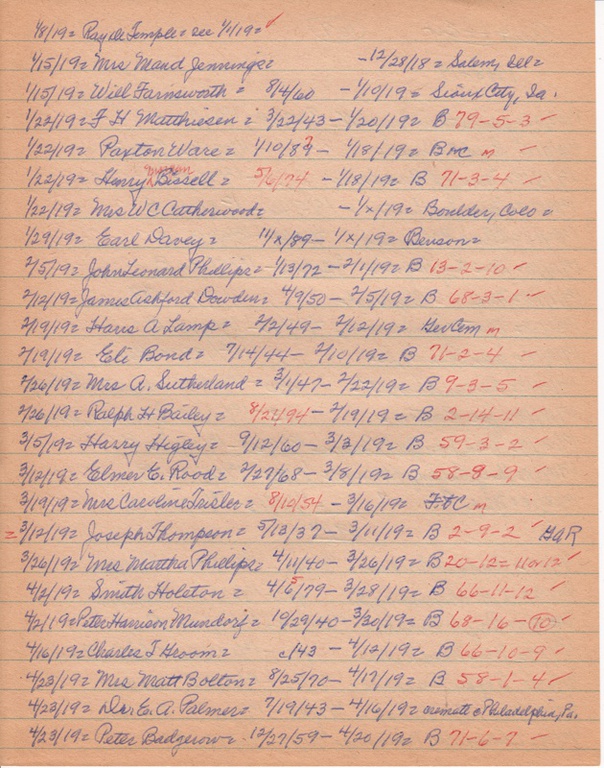 1/8/19= Ray de Temple= see 1/1/19= ✓
1/15/19= Mrs Maud Jennings= -12/28/18= Salem, Ill=
1/15/19= Will Farnsworth= 8/4/60 -1/19/19= Sioux City, Ia.
1/22/19= F H Matthiesen= 3/22/43- 1/20/19= B 79-5-3 ✓
1/22/19= Paxton Ware= 1/10/89? - 1/18/19= B m
1/22/19= Henry Bissell= 5/6/74 - 1/18/19= B 71-3-4 ✓
1/22/19= Mrs W C Catherwood= - 1/x/19= Boulder, Colo=
1/29/19= Earl Davey= 11/x/89- 1/x/19= Benson=
2/5/19= John Leonard Phillips= 1/13/72- 2/1/19= B 13-2-10 ✓
2/12/19= James Ashford Dowden= 4/9/50 - 2/5/19= B 68-3-1 ✓
2/19/19= Hans A Lamp= 2/2/49- 2/12/19= Ger Cem m
2/19/19= Eli Bond= 7/14/44- 2/10/19= B 71-2-4 ✓
2/26/19= Mrs A. Sutherland= 3/1/47- 2/22/19= B 9-3-5 ✓
2/26/19= Ralph H Bailey= 8/21/94- 2/19/19= B 2-14-11 ✓
3/5/19= Harry Higley= 9/12/60- 3/3/19= B 59-3-2 ✓
3/12/19= Elmer E. Rood= 2/27/68- 3/8/19= B 58-9-9 ✓
3/19/19= Mrs Caroline Trisler= 8/10/54 - 3/16/19= m
= 3/12/19= Joseph Thompson= 5/13/37- 3/11/19= B 2-9-2 ✓ GAR
3/26/19= Mrs Martha Phillips= 4/11/40- 3/26/19= B 20-12= 11 or 12 ✓
4/2/19= Smith Holston= 4/6/79- 3/28/19= B 66-11-12 ✓
4/2/19= Peter Harrison Mundorf= 10/29/40- 3/30/19= B 68-16-10 ✓
4/16/19= Charles T Groom= c/43 - 4/12/19= B 66-10-9 ✓
4/23/19= Mrs Matt Bolton= 8/25/70- 4/17/19= B 58-1-4 ✓
4/23/19= Dr. E. A. Palmer= 7/19/43- 4/16/19= Philadelphia, Pa.
4/23/19= Peter Badgerow= 12/27/59- 4/20/19= B 71-6-7 ✓